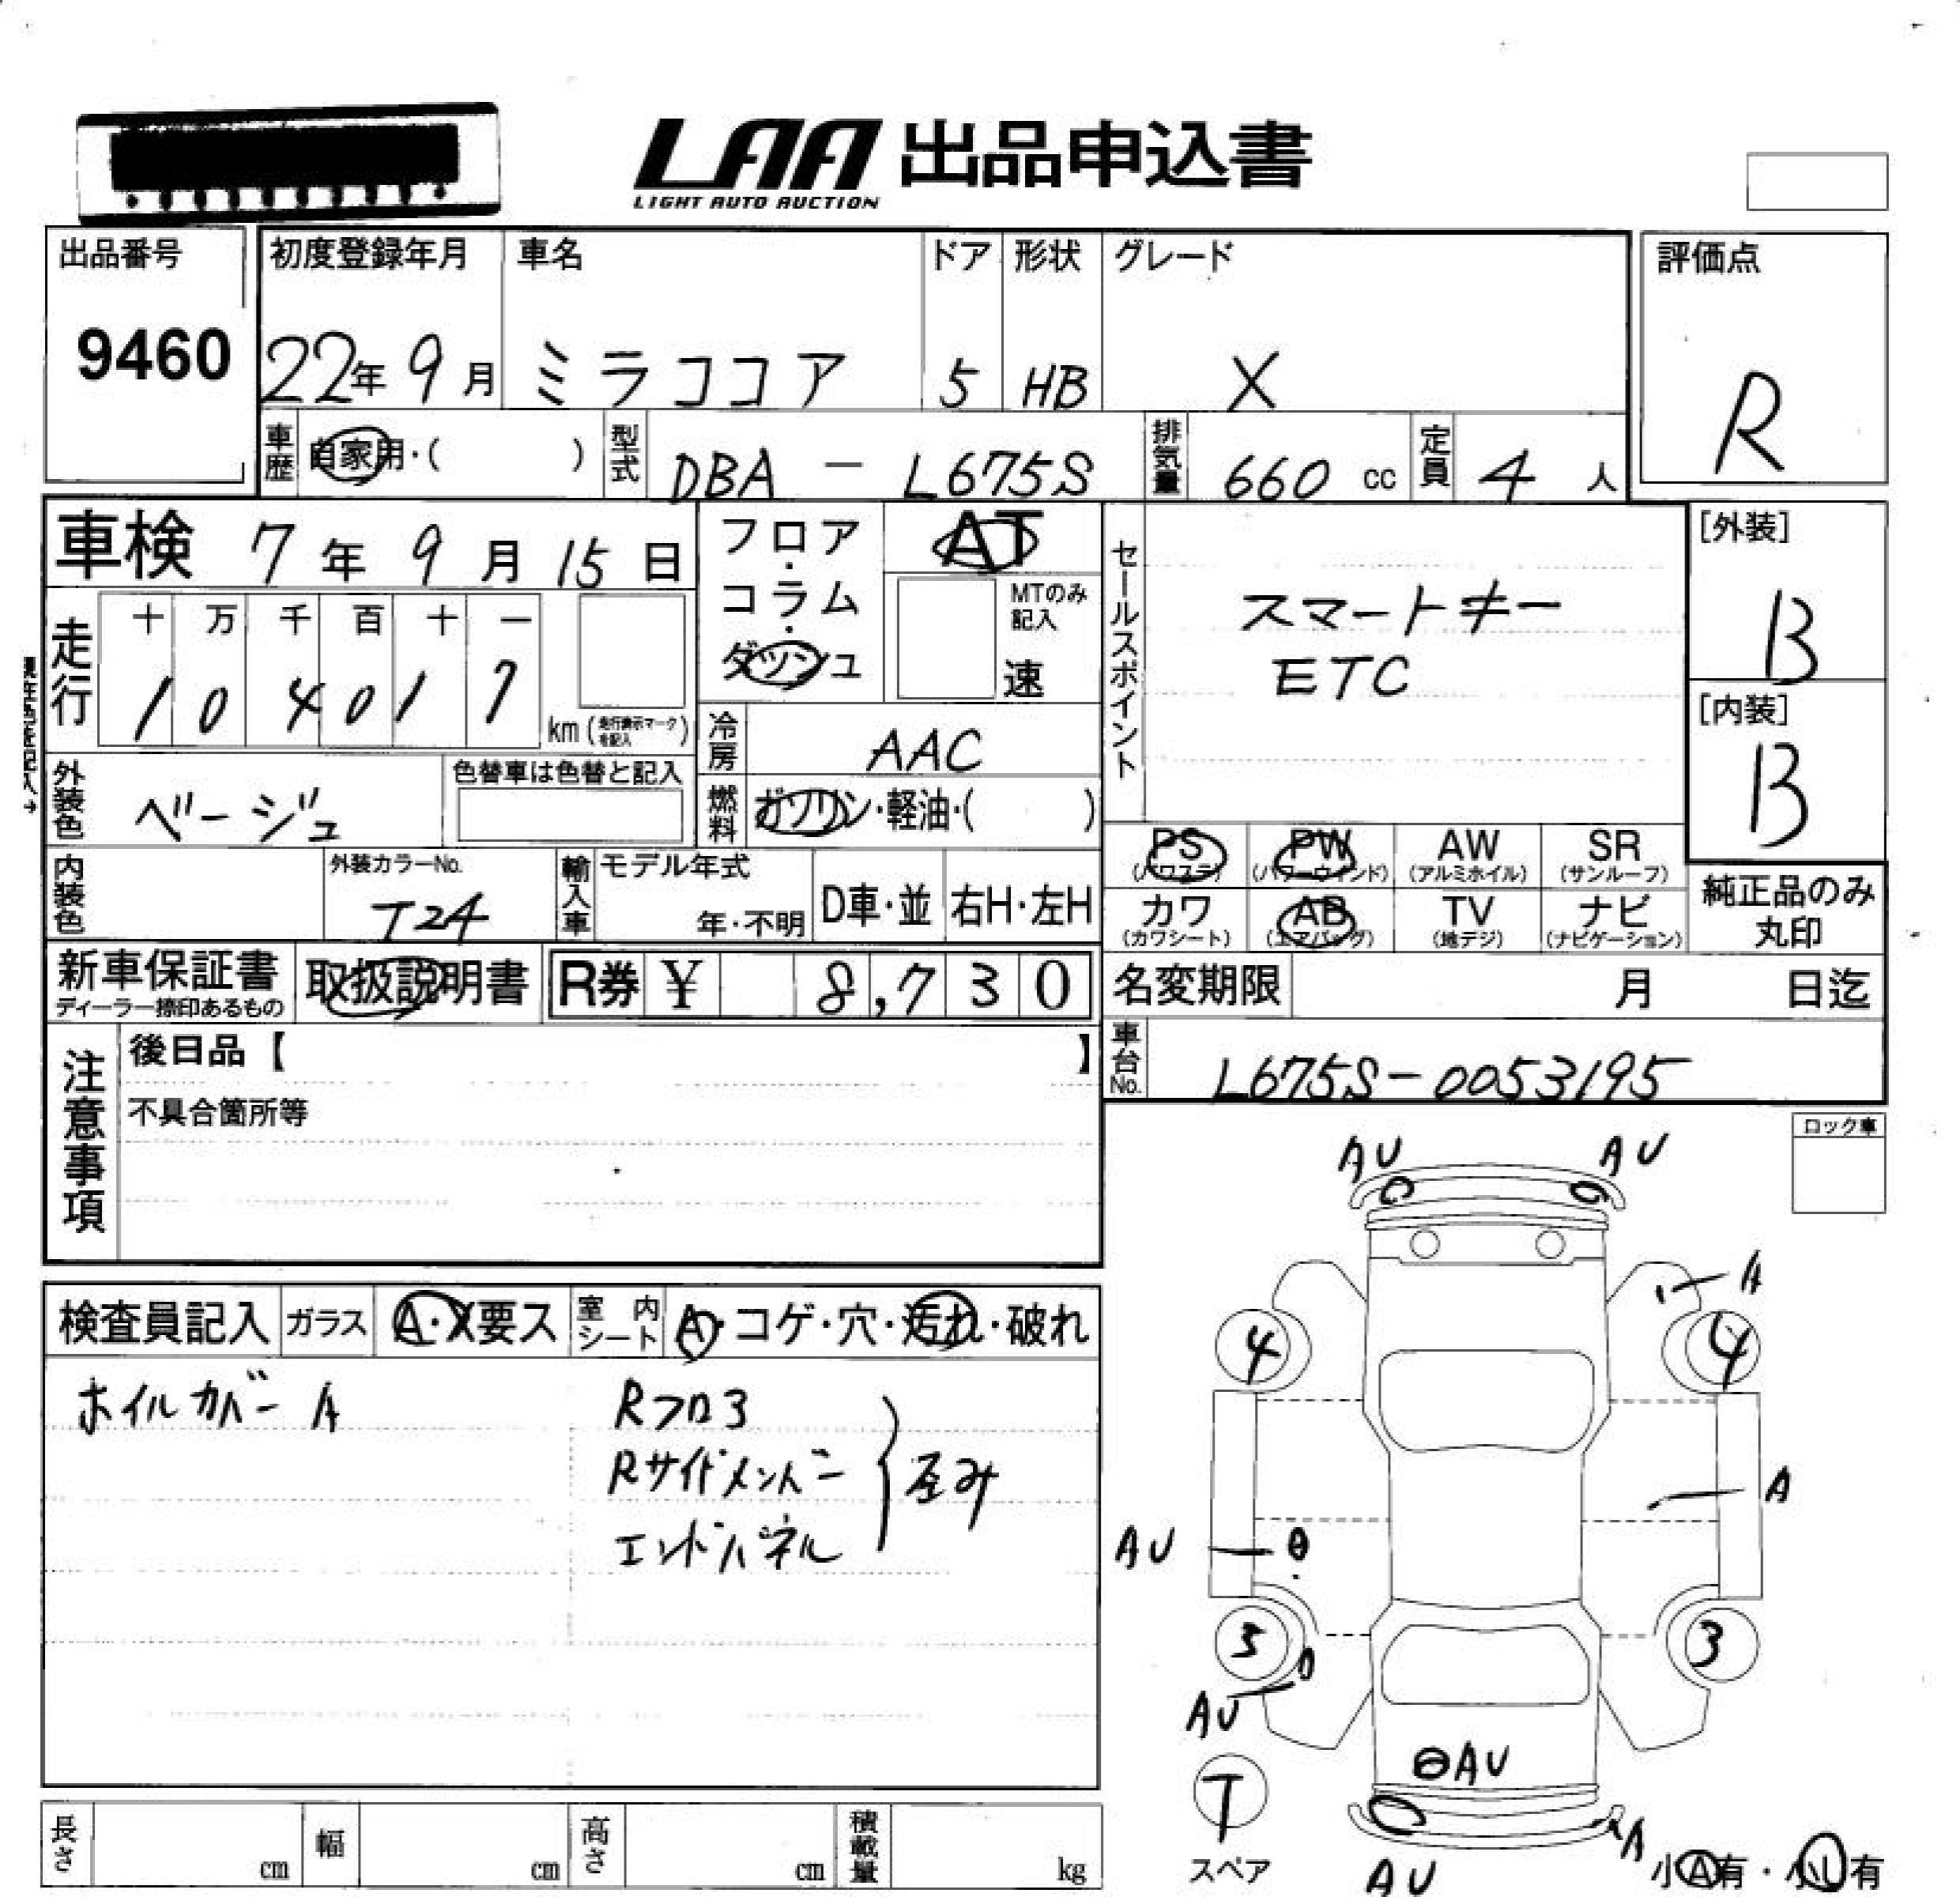 LAA 出品申込書
LIGHT AUTO AUCTION
出品番号
9460
初度登録年月
22年 9月
車名
ミラココア
ドア
5
形状
HB
グレード
X
評価点
R
車歴 自家用・( )
型式 DBA - L675S
排気量 660 cc
定員 4 人
車検 7年 9月 15日
走行
十 万 千 百 十 一
1 0 4 0 1 7
km (走行表示マークを記入)
フロア・コラム・ダッシュ
AT
MTのみ記入
速
冷房 AAC
燃料 ガソリン・軽油・( )
セールスポイント
スマートキー
ETC
[外装]
B
[内装]
B
外装色 ベージュ
色替車は色替と記入
内装色
外装カラーNo.
T24
輸入車 モデル年式
年・不明 D車・並 右H・左H
PS (パワステ) PW (パワーウインド) AW (アルミホイル) SR (サンルーフ)
カワ (カワシート) AB (エアバッグ) TV (地デジ) ナビ (ナビゲーション)
純正品のみ丸印
新車保証書
ディーラー捺印あるもの
取扱説明書
R券 ¥ 8,730
名変期限 月 日迄
車台No. L675S-0053195
注意事項
後日品【 】
不具合箇所等
ロック車
検査員記入 ガラス A・X要ス 室内シート A・コゲ・穴・汚れ・破れ
ホイルカバー A
Rフロ3
Rサイドメンバー
エンドパネル
歪み
AU AU
A
4 4
A
AU
3 3
AU
AU
T
スペア
A
AU
小A有・小U有
長さ cm 幅 cm 高さ cm 積載量 kg